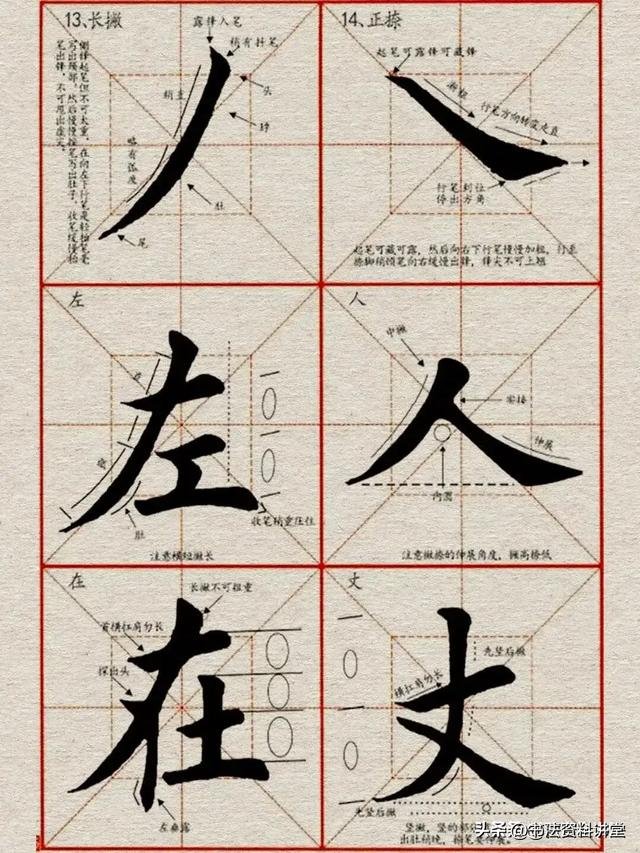 13、长撇
露锋入笔
稍有抖笔
头
脖
稍直
略有弧度
肚
尾
侧锋起笔但不可太重,在向左下行笔是轻抬笔毫
写出颈部,然后慢慢按笔写出肚子,收笔缓慢抬
笔出锋,不可甩出虚尖。
14、正捺
起笔可露锋可藏锋
渐粗
行笔方向转变走直
行笔到位
停出方角
起笔可藏可露,然后向右下行笔慢慢加粗,行至
捺脚稍顿笔向右缓慢出锋,锋尖不可上翘
左
直
弯
肚
收笔稍重压住
注意横短撇长
左
人
中撇
实接
伸展
内圆
注意撇捺的伸展角度,撇高捺低
人
在
长撇不可粗重
首横扛肩勿长
探出头
左垂露
在
丈
先竖后撇
横扛肩勿长
先竖后撇
竖撇,竖的部
出肚稍晚,捺笔要伸展。
丈
头条 @书法资料讲堂